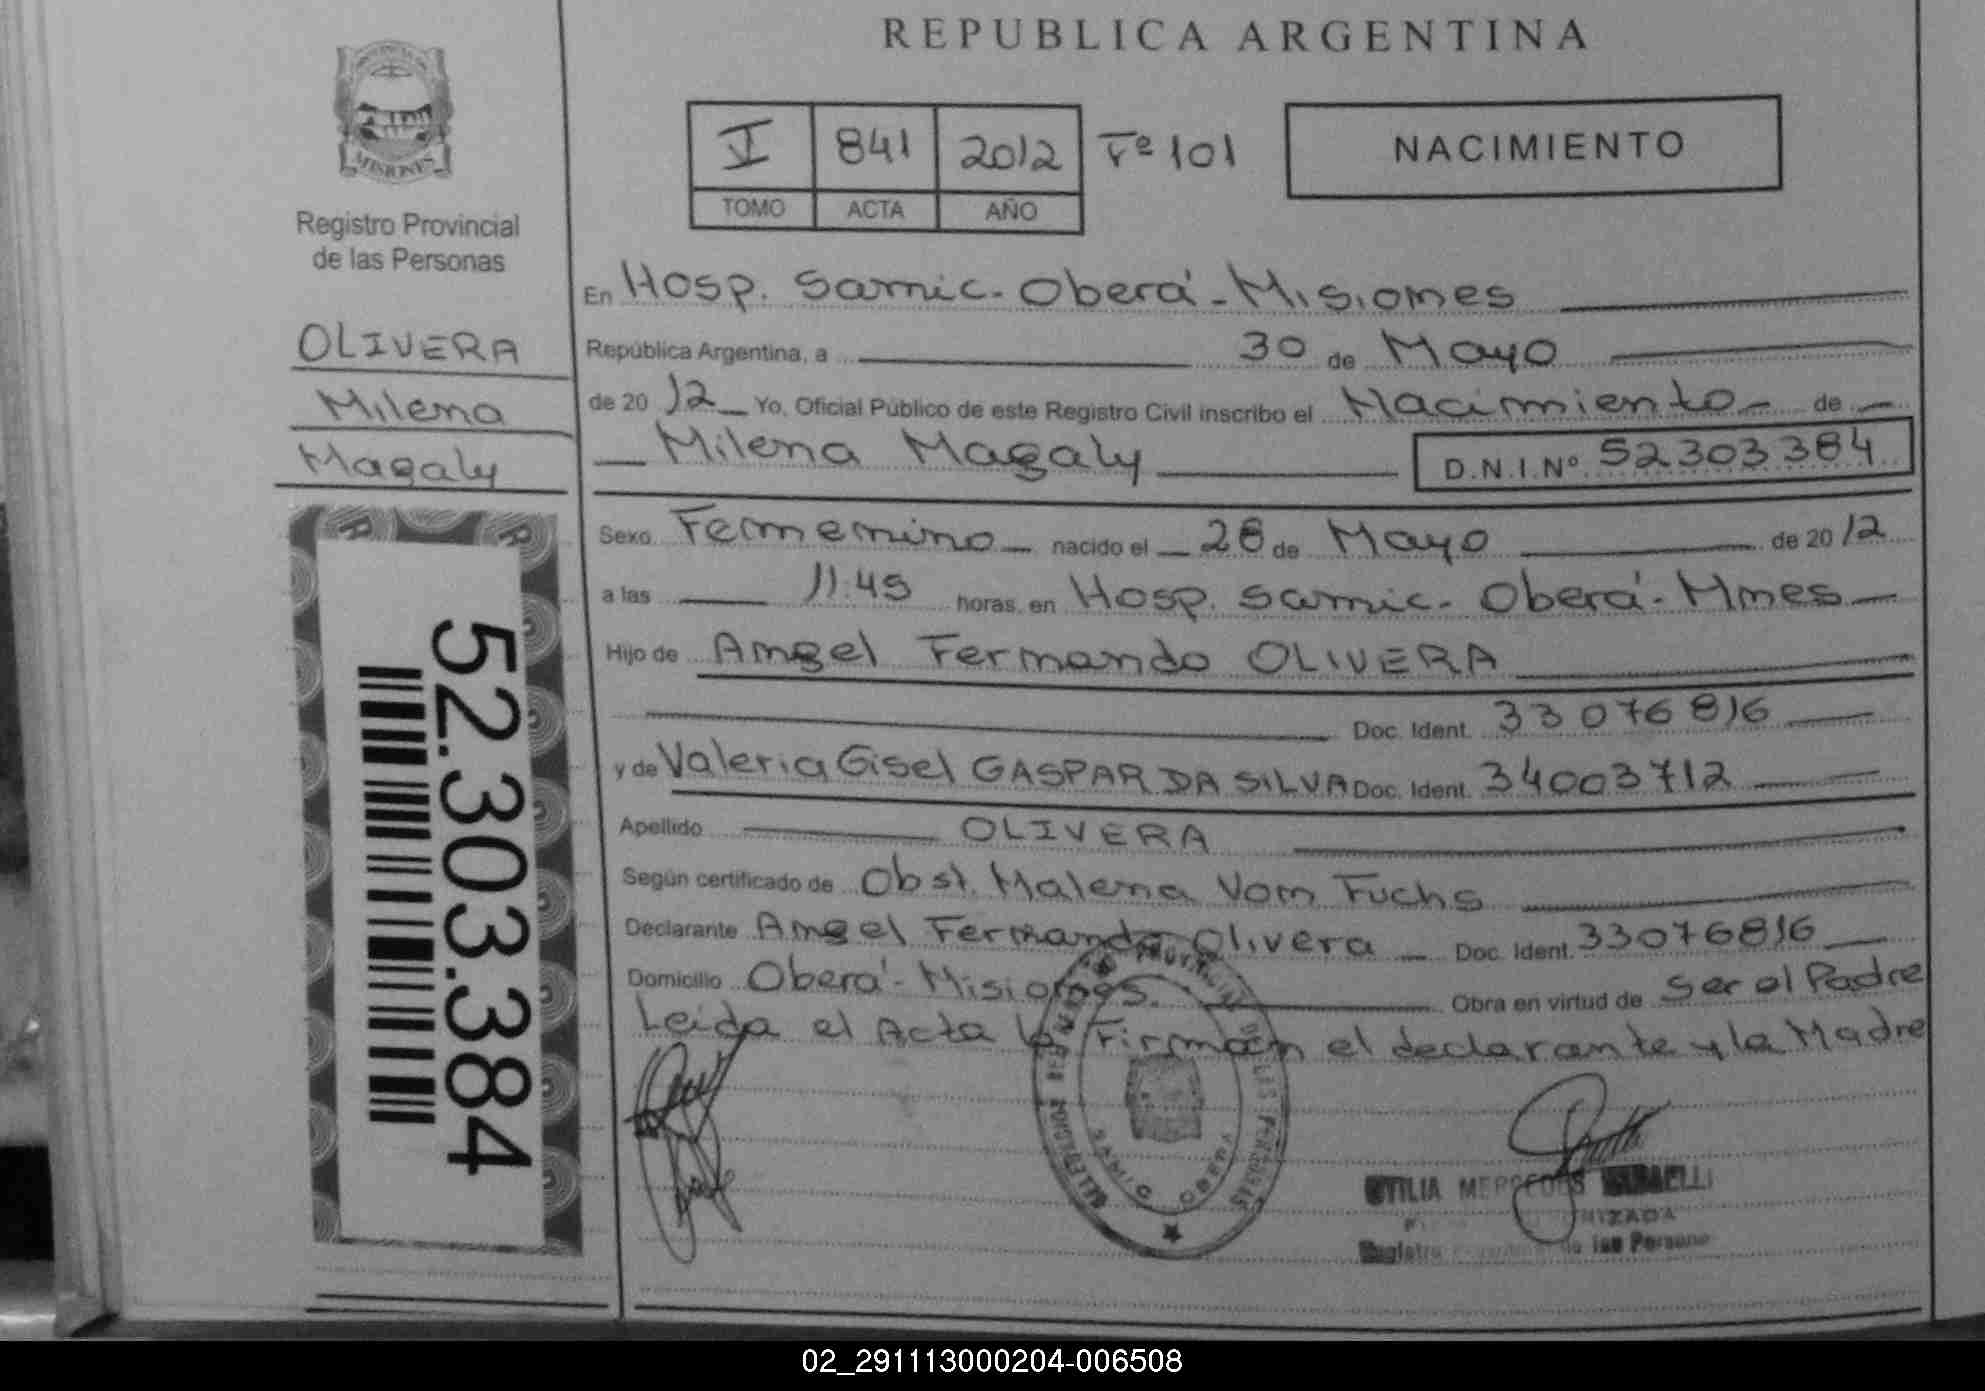 REPUBLICA ARGENTINA
MISIONES
Registro Provincial
de las Personas
OLIVERA
Milena
Magaly
52.303.384
V 841 2012 Fº 101
TOMO ACTA AÑO
NACIMIENTO
En Hosp. Samic - Oberá - Misiones
República Argentina, a 30 de Mayo
de 2012 Yo, Oficial Público de este Registro Civil inscribo el Nacimiento de
Milena Magaly D.N.I.Nº 52303384
Sexo Femenino nacido el 28 de Mayo de 2012
a las 11:45 horas, en Hosp. Samic - Oberá - Mnes
Hijo de Angel Fernando OLIVERA
Doc. Ident. 33076816
y de Valeria Gisel GASPAR DA SILVA Doc. Ident. 34003712
Apellido OLIVERA
Según certificado de Obst. Malena Von Fuchs
Declarante Angel Fernando Olivera Doc. Ident. 33076816
Domicilio Oberá - Misiones. Obra en virtud de Ser el Padre
Leida el Acta la Firman el declarante y la Madre
SAMIC OBERA
MERCEDES
Registro de las Personas
02_291113000204-006508